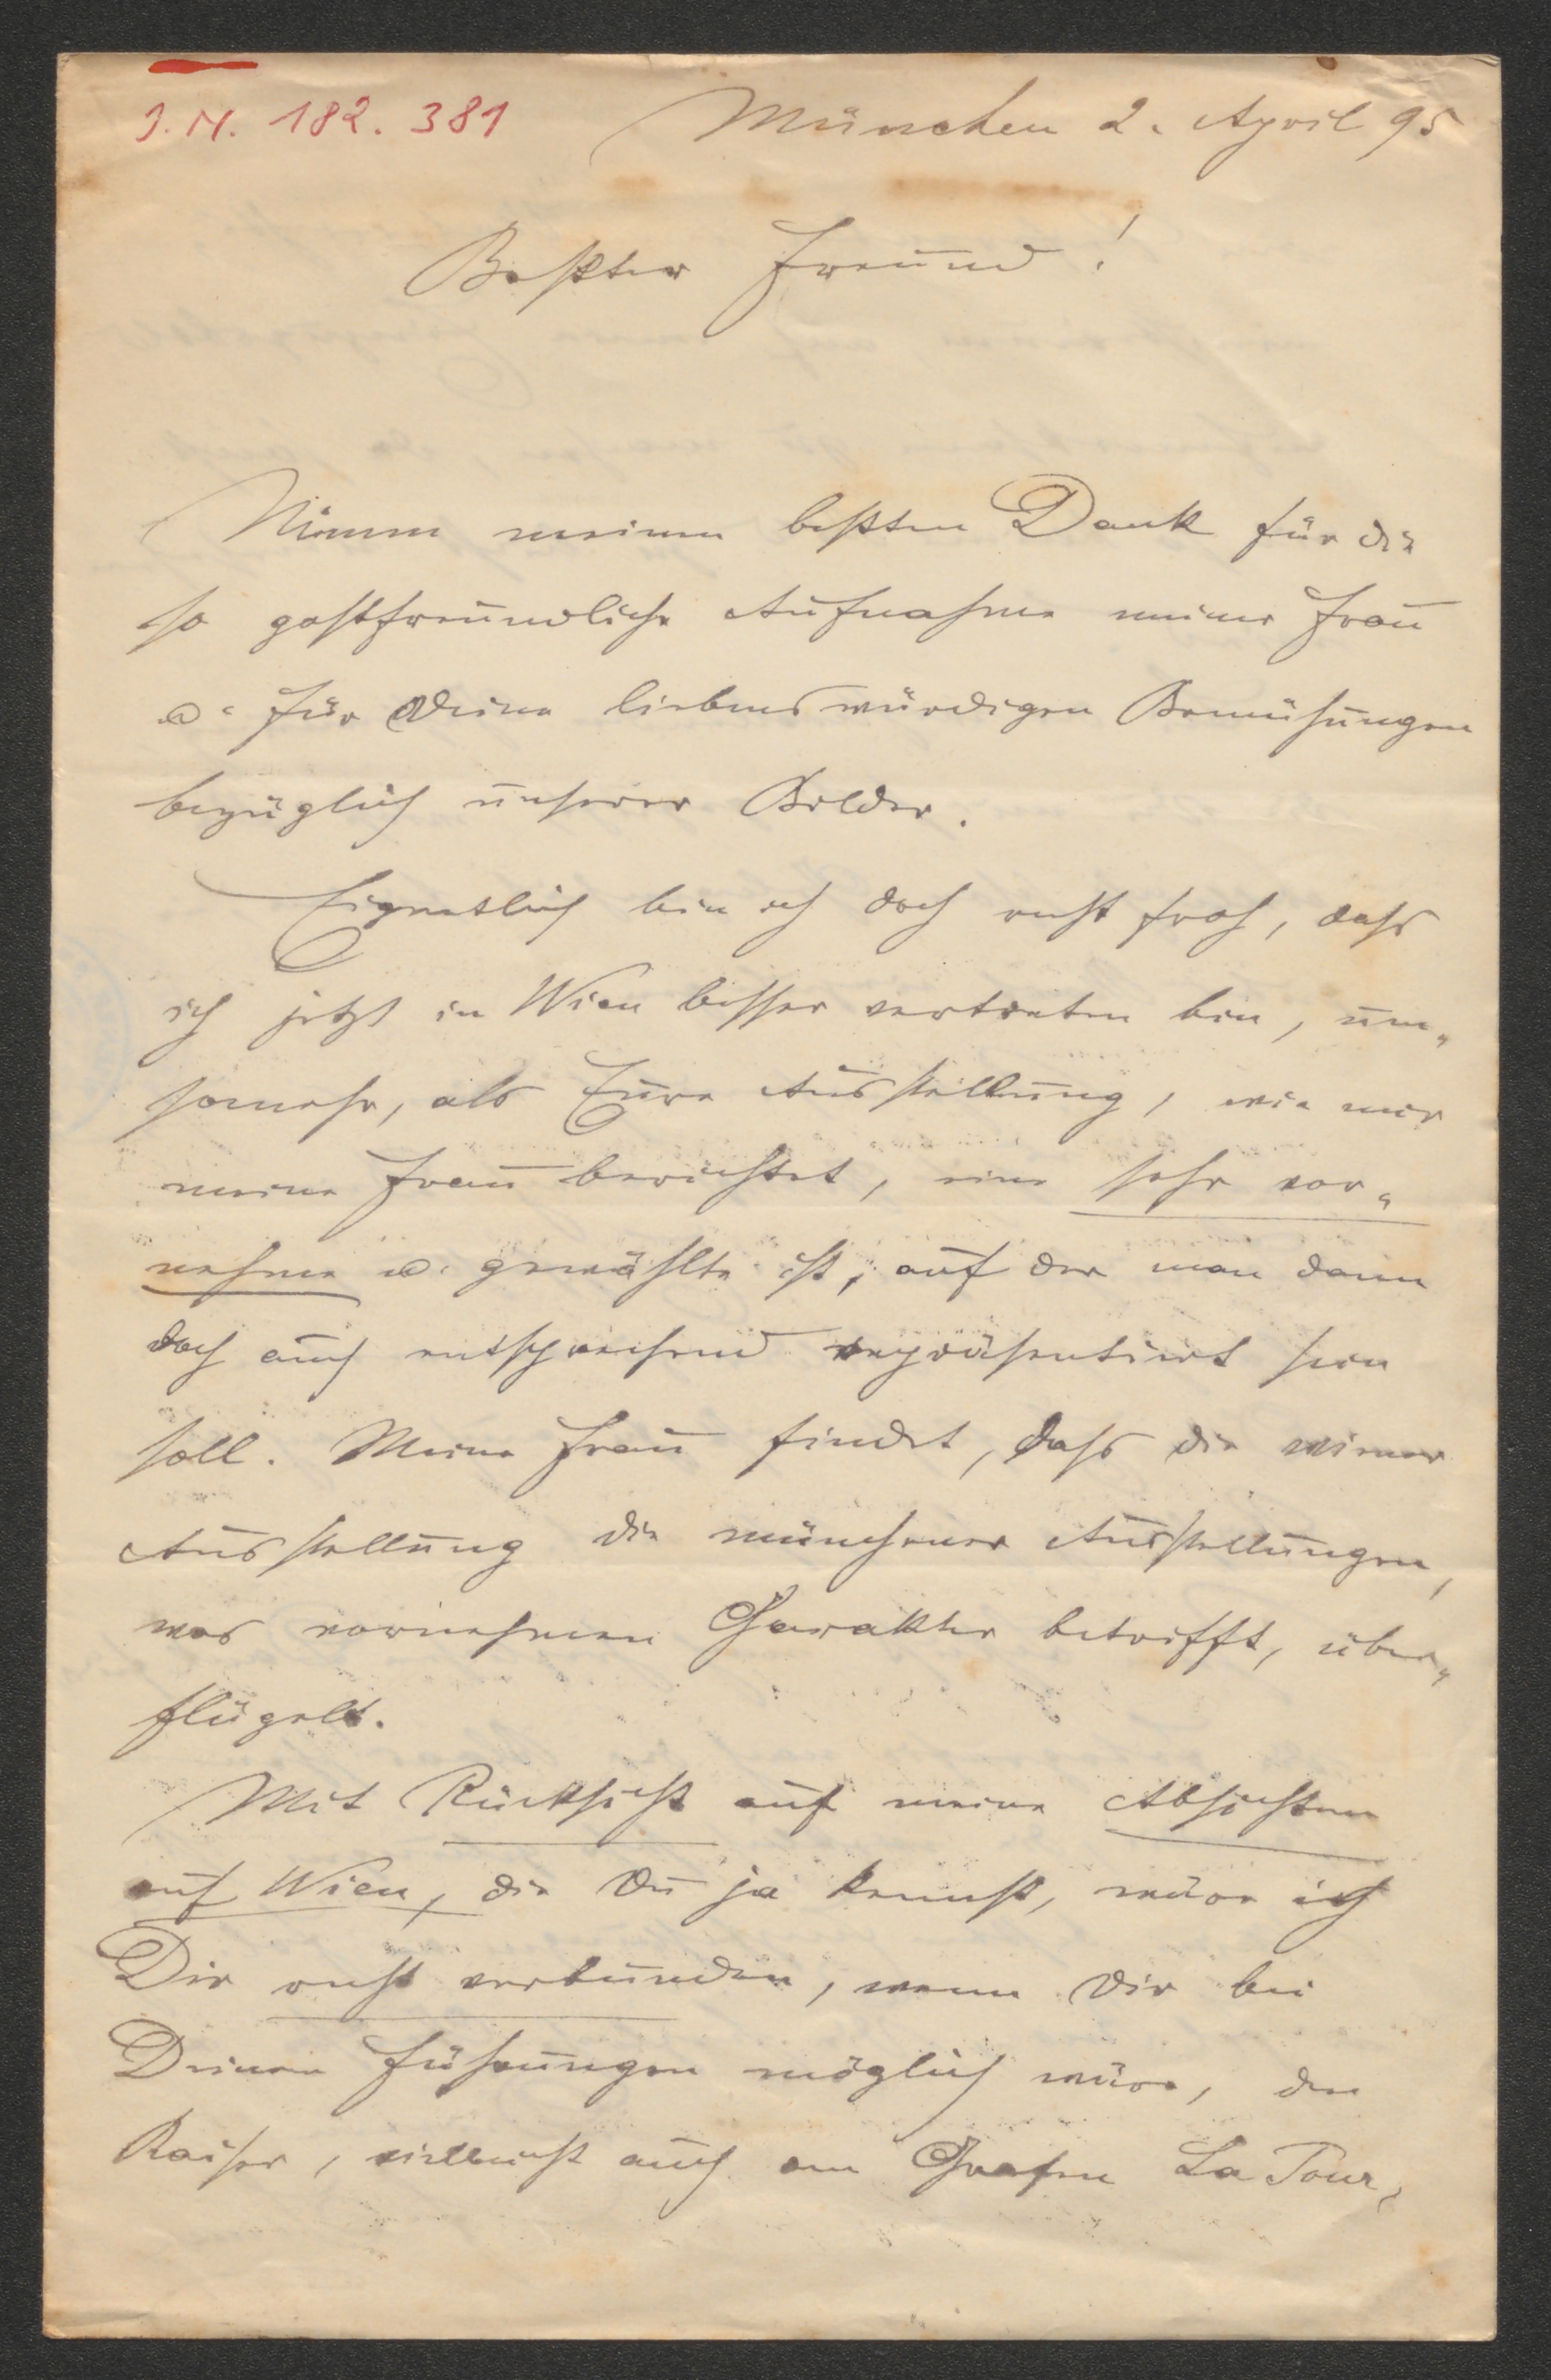 I.N. 182.381
München 2. April 95
Beßter Freund!
Nimm meinen beßten Dank für die
so gastfreundliche Aufnahme meiner Frau
u. für Deine liebenswürdigen Bemühungen
bezüglich unserer Bilder.
Eigentlich bin ich doch recht froh, dass
ich jetzt in Wien besser vertreten bin, um„
somehr, als Eure Ausstellung, wie mir
meine Frau berichtet, eine sehr vor„
nehme u. gewählte ist, auf der man dann
doch auch entsprechend repräsentiert sein
soll. Meine Frau findet, dass die wiener
Ausstellung die münchener Ausstellungen,
was vornehmen Charakter betrifft, über„
flügelt.
Mit Rücksicht auf meine Absichten
auf Wien, die Du ja kennst, wäre ich
Dir recht verbunden, wenn Dir bei
Deinen Führungen möglich wäre, den
Kaiser, vielleicht auch den Grafen La Tour,